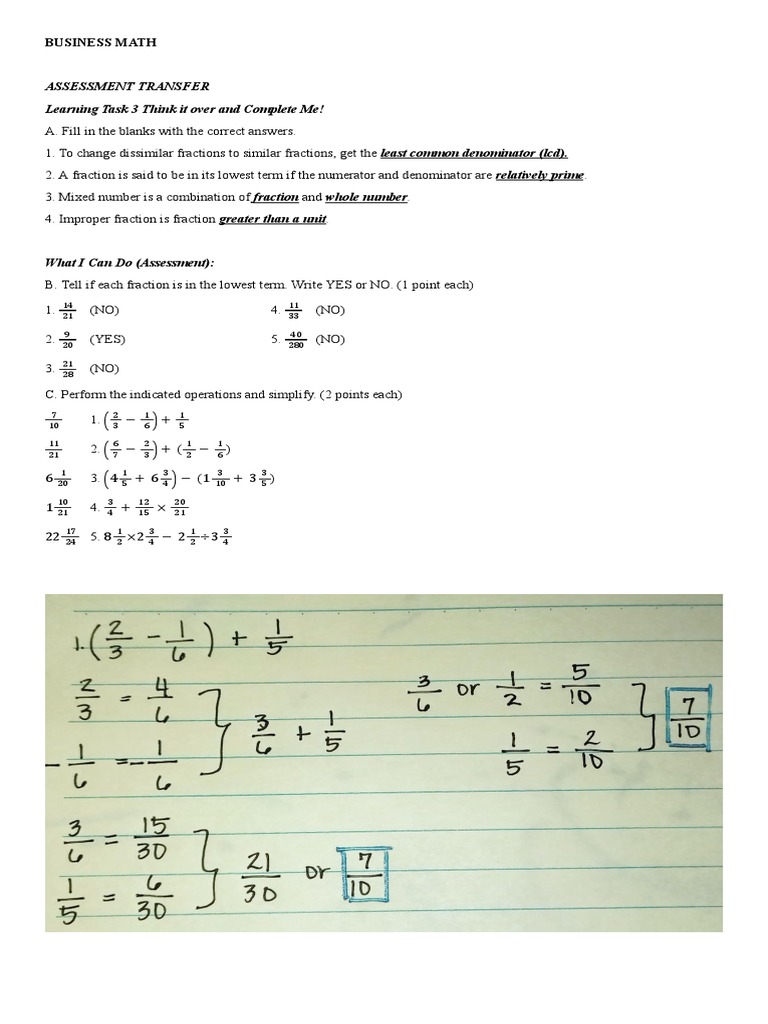 BUSINESS MATH
ASSESSMENT TRANSFER
Learning Task 3 Think it over and Complete Me!
A. Fill in the blanks with the correct answers.
1. To change dissimilar fractions to similar fractions, get the least common denominator (lcd).
2. A fraction is said to be in its lowest term if the numerator and denominator are relatively prime.
3. Mixed number is a combination of fraction and whole number.
4. Improper fraction is fraction greater than a unit.
What I Can Do (Assessment):
B. Tell if each fraction is in the lowest term. Write YES or NO. (1 point each)
1. 14/21 (NO) 4. 11/33 (NO)
2. 9/20 (YES) 5. 40/280 (NO)
3. 21/28 (NO)
C. Perform the indicated operations and simplify. (2 points each)
7/10 1. (2/3 − 1/6) + 1/5
11/21 2. (6/7 − 2/3) + (1/2 − 1/6)
6 1/20 3. (4 1/5 + 6 3/4) − (1 3/10 + 3 3/5)
1 10/21 4. 3/4 + 12/15 × 20/21
22 17/24 5. 8 1/2 × 2 3/4 − 2 1/2 ÷ 3 3/4
1. (2/3 − 1/6) + 1/5
2/3 = 4/6
− 1/6 = − 1/6
3/6 + 1/5
3/6 or 1/2 = 5/10
1/5 = 2/10
7/10
3/6 = 15/30
1/5 = 6/30
21/30 or 7/10